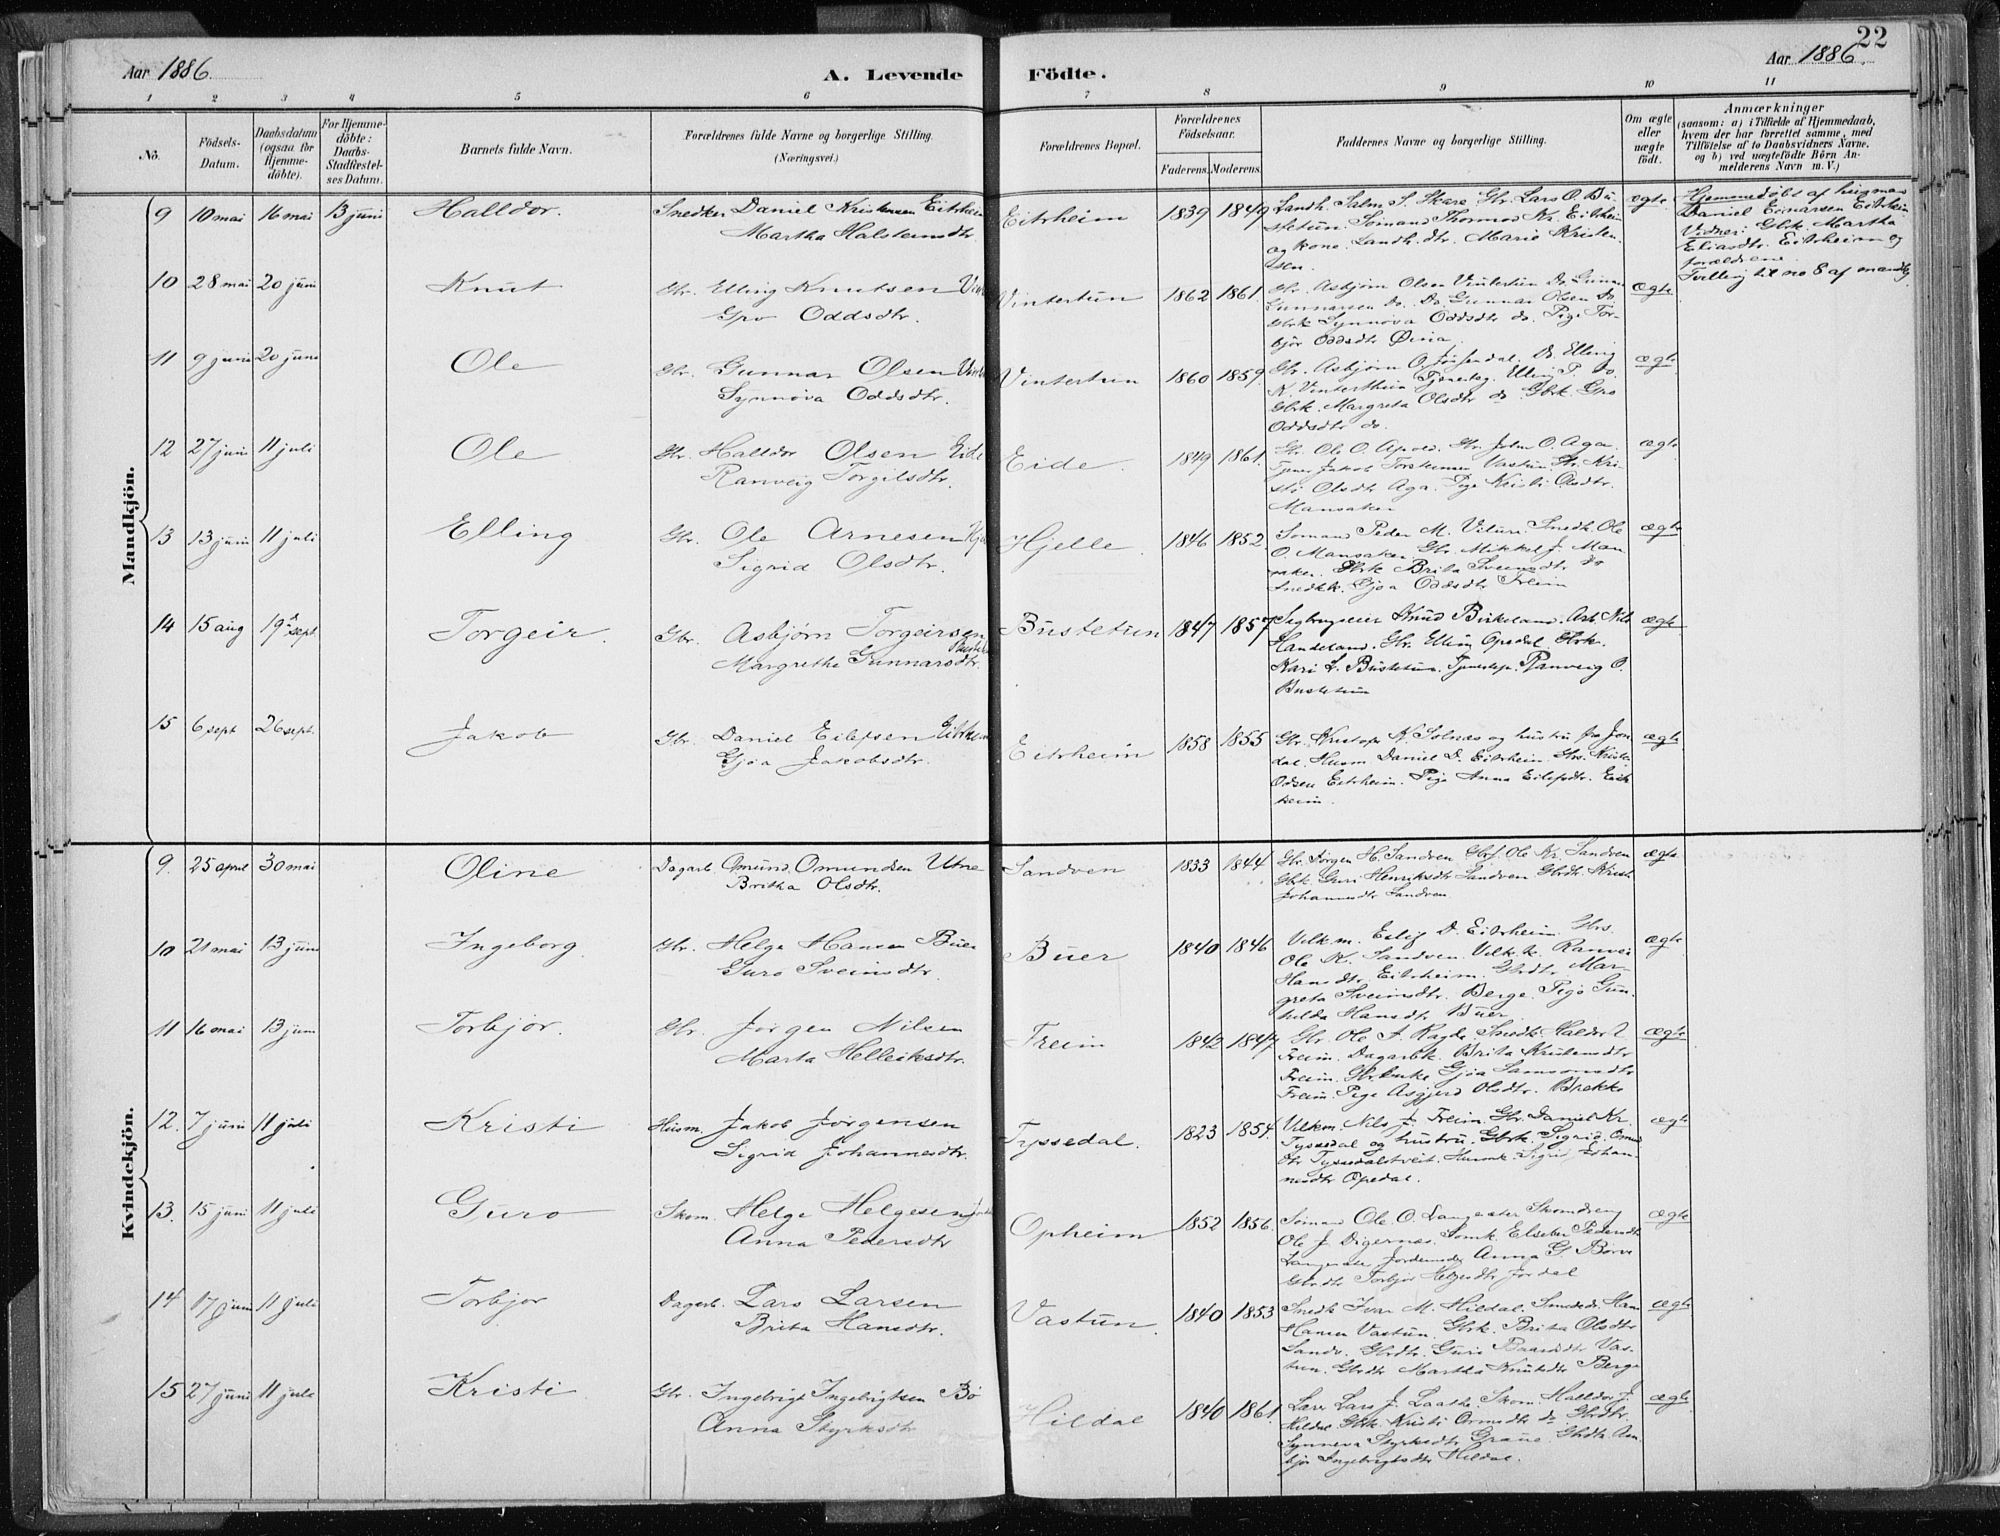 22
Aar 1886.
A. Levende Födte.
Aar 1886.
1 2 3 4 5 6 7 8 9 10 11
No.
Födsels-Datum.
Daabsdatum (ogsaa for Hjemmedöbte).
For Hjemmedöbte: Daabs-Stadfæstelses Datum.
Barnets fulde Navn.
Forældrenes fulde Navne og borgerlige Stilling.
(Næringsvei.)
Forældrenes Bopæl.
Forældrenes Födselsaar.
Faderens. Moderens.
Faddernes Navne og borgerlige Stilling.
Om ægte eller uægte födt.
Anmærkninger
(saasom: a) i Tilfælde af Hjemmedaab, hvem der har forrettet samme, med Tilföielse af to Daabsvidners Navne, og b) ved uægtefödte Börn Anmelderens Navn m. V.)
Mandkjön.
9 10 mai 16 mai 13 juni Halldor. Snedker Daniel Kristensen Eitrheim
Martha Halsteinsdtr.
Eitrheim 1839 1849 Landh. Salm. S. Skare Gbr. Lars O. Bu-
stetun. Sömand Thormod Kr. Eitrheim
og kone. Landh. dtr. Marie Kristen-
sen.
ægte
Hjemmedöbt af
Daniel Einarsen Eitrheim
Vidner: Gbk. Martha
Eliasdtr. Eitrheim og
forældrene.
Tvilling til no 8 af mandkj.
10 28 mai 20 juni Knut Gbr. Elling Knutsen
Gro Oddsdtr.
Vintertun 1862 1861. Gbr. Asbjörn Olsen Vintertun Do. Gunnar
Gunnarsen do. Do. Gunnar Olsen do.
Gbrk Synnöva Oddsdtr do. Pige Tor-
björ Oddsdtr
ægte
11 9 juni 20 juni Ole Gbr. Gunnar Olsen
Synnöva Oddsdtr.
Vintertun 1860 1859. Gbr. Asbjörn O. Do. Elling
K. Elling P. do.
Gbrk. Margreta Olsdtr do Gbrk. Gro
Oddsdtr do.
ægte
12 27 juni 11 juli Ole Gbr. Halldor Olsen Eide
Ranveig Torgilsdtr.
Eide. 1849 1861. Gbr. Ole O. Apold. Gbr. John O. Aga
Tjener Jakob Torsteinsen Vastun. Gbr. Kri-
sti Olsdtr Aga. Pige Kristi Olsdtr.
Mansaker
ægte
13 13 juni 11 juli Elling Gbr. Ole Arnesen
Sigrid Olsdtr.
Hjelle. 1846 1852 Sömand Peder M. Snedk. Ole
O. Mansaker. Gbr. Mikkel J. Man-
saker. Gbrk Brita Sveinsdtr do
Snedkk. Gjöa Oddsdtr Freim
ægte
14 15 aug 19 sept. Torgeir. Gbr. Asbjörn Torgeirsen
Margretha Gunnarsdtr.
Bustetun 1847 1857 Knud Birkeland. Arb. Nils
Handeland. Gbr. Opedal. Gbrk.
Kari L. Bustetun. Tjenestep. Ranveig O.
Bustetun
ægte
15 6 sept 26 sept. Jakob Gbr. Daniel Eilefsen Eitrheim
Gjöa Jakobsdtr.
Eitrheim 1858 1855 Gbr. Kristofer K. Solnæs og hustru fra Jon-
dal. Husm. Daniel D. Eitrheim. Gbr. Kristen
Odsen Eitrheim. Pige Anna Eilefsdtr. Eitr-
heim.
ægte
Kvindekjön.
9. 25 april 30 mai Oline Dagarb. Omund Omundsen Utne
Britha Olsdtr.
Sandven 1833 1844 Gbr. Jörgen H. Sandven. Gbrs. Ole Kr. Sandven
Gbrk. Guri Henriksdtr Sandven Gbrdtr. Kristi
Johannesdtr Sandven
ægte
10 21 mai 13 juni Ingeborg Gbr. Helge Hansen Buer
Guro Sveinsdtr.
Buer 1840 1846 Velk.m. D. Eitrheim. Gbrs.
Ole K. Sandven. Velk.k. Ranvei
Hansdtr. Eitrheim. Gbrdtr. Mar-
greta Sveinsdtr. Berge. Pige Gun-
hilda Hansdtr. Buer.
ægte
11 16 mai 13 juni Torbjor. Gbr. Jörgen Nilsen
Marta Helleiksdtr.
Freim 1842 1847 Gbr. Ole A. Ragde. Snedk. Haldor
Freim. Dagarbk. Brita Kristensdtr
Freim. Gbr.enke Gjöa Samsonsdtr
Freim. Pige Asgjerd Olsdtr. Brekke
ægte
12. 7 juni 11 juli Kristi Husm. Jakob Jörgensen
Sigrid Johannesdtr.
Tyssedal. 1823 1854. Velkm. Nils J. Freim. Gbr. Daniel Kr.
Tyssedal og hustru. Gbrk. Sigrid Omund
dtr Tyssedalstveit. Husmk. Sigrid Johan-
nesdtr Opedal.
ægte
13. 15 juni 11 juli Guro Skom. Helge Helgesen
Anna Pedersdtr
Opheim 1852 1856. Sömand Ole O. Langesæter Skomdreng
Ole J. Digernæs. Sömk. Elseber Pedersdtr
Langesæter Jordemoder Anna G. Börve
Gbrdtr Torbjör Helgesdtr Jordal
ægte
14 17 juni 11 juli Torbjor Dagarb. Lars Larsen
Brita Hansdtr.
Vastun. 1840 1853 Snedk. Ivar M. Hildal. Hans
Hansen Vastun. Gbrk. Brita Olsdtr
Sandv. Gbrdtr. Guri Baardsdtr Vas-
tun. Gbrdtr Martha Knutsdtr Berge
ægte
15 27 juni 11 juli Kristi. Gbr. Ingebrigt Ingebrigtsen Bö
Anna Styrksdtr
Hildal 1840 1861. Lærer Lars J. Laathe. Skom. Halldor J.
Hildal Gbrk Kristi Ormsdtr do Gbrdtr.
Synneva Styrksdtr Gbrdtr. Am-
björ Ingebrigtsdtr Hildal.
ægte